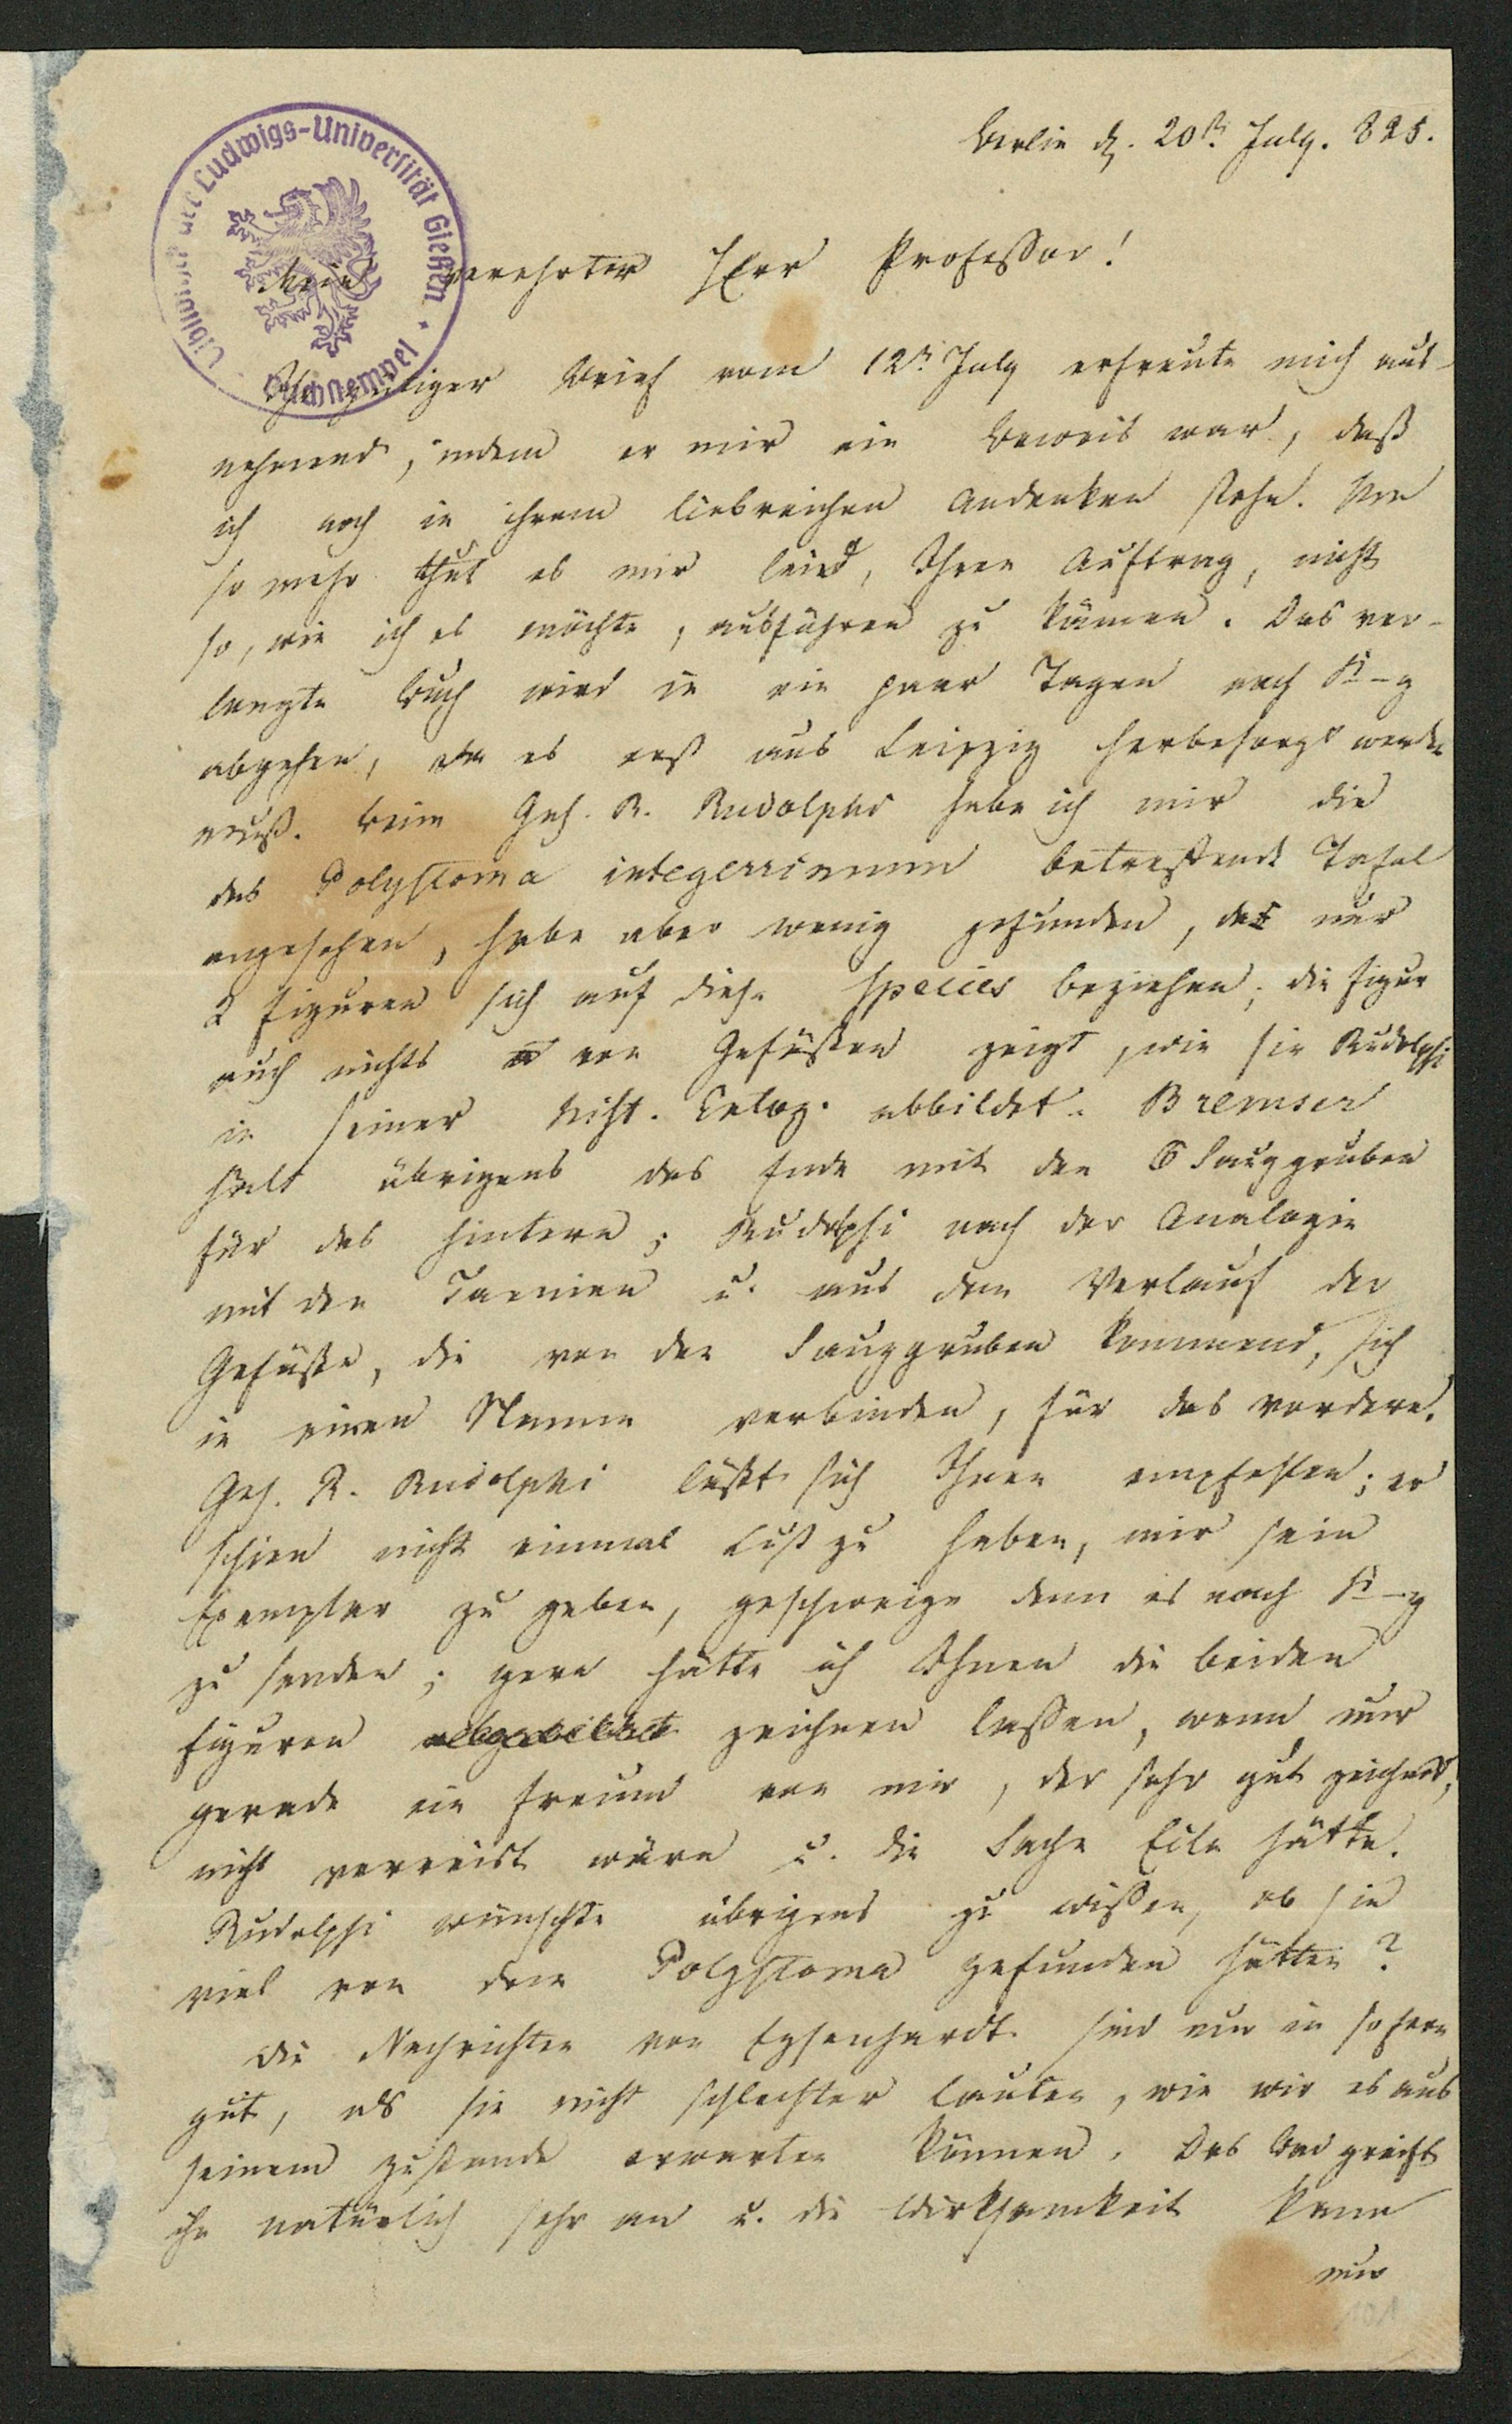 Berlin d. 20st. July. 825.
Mein verehrter Herr Professor!
Ihr gütiger Brief vom 12t. July erfreute mich aus-
nehmend, indem er mir ein Beweis war, daß
ich noch in ihrem liebreichen Andenken stehe. Um
so mehr thut es mir leid, Ihren Auftrag, nicht
so, wie ich es möchte, ausführen zu können. Das ver-
langte Buch wird in ein paar Tagen nach K–g
abgehen, da es erst aus Leipzig herbesorgt werden
muß. Beim Geh. R. Rudolphi habe ich mir die
das Polystoma integerrimum betreffende Tafel
angesehen, habe aber wenig gefunden, da nur
2 Figuren sich auf diese Species beziehen; die Figur
auch nichts von Gefäßen zeigt, wie sie Rudolphi
in seiner Hist. Entoz. abbildet. Bremser
hält übrigens das Ende mit den 6 Sauggruben
für das hintere; Rudolphi nach der Analogie
mit den Taenien u. aus dem Verlauf der
Gefäße, die von den Sauggruben kommend, sich
in einen Stamm verbinden, für das vordere.
Geh. R. Rudolphi läßt sich Ihnen empfehlen; er
schien nicht einmal Lust zu haben, mir sein
Exemplar zu geben, geschweige denn es nach K–g
zu senden; gern hätte ich Ihnen die beiden
Figuren abgebildet zeichnen lassen, wenn nur
gerade ein Freund von mir, der sehr gut zeichnet,
nicht verreist wäre u. die Sache Eile hätte.
Rudolphi wünschte übrigens zu wissen, ob sie
viel von dem Polystoma gefunden hätten?
Die Nachrichten von Eysenhardt sind nur in sofern
gut, als sie nicht schlechter lauten, wie wir es aus
seinem Zustande erwarten können. Das Bad greift
ihn natürlich sehr an u. die Wirksamkeit kann
nur
Bibliothek der Ludwigs-Universität Gießen